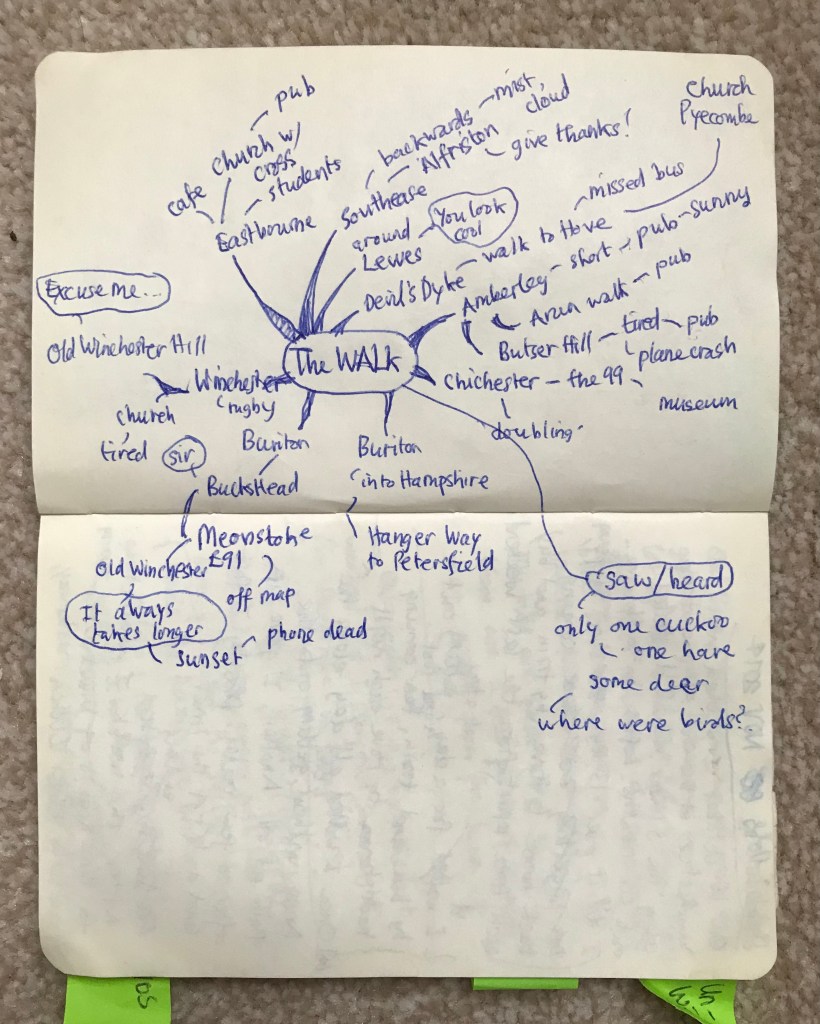 The WALK
Eastbourne
cafe
church w/
cross
pub
students
Southease
backwards
mist
cloud
Alfriston
give thanks!
around
Lewes
You look
cool
Devil's Dyke
walk to Hove
missed bus
Church
Pyecombe
Amberley - short
pub - sunny
Arun walk - pub
Butser Hill - tired - pub
plane crash
Chichester - the 99
museum
doubling
saw/heard
only one cuckoo
one hare
some dear
where were birds?
Buriton
into Hampshire
Hanger Way
to Petersfield
Buriton
BucksHead
sir
Meonstoke
£91
off map
Old Winchester
It always
takes longer
sunset
phone dead
Winchester
rugby
church
tired
Old Winchester Hill
Excuse me...